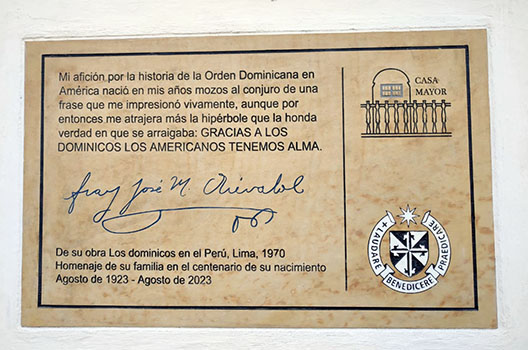 Mi afición por la historia de la Orden Dominicana en
América nació en mis años mozos al conjuro de una
frase que me impresionó vivamente, aunque por
entonces me atrajera más la hipérbole que la honda
verdad en que se arraigaba: GRACIAS A LOS
DOMINICOS LOS AMERICANOS TENEMOS ALMA.
fray José M. Arévalo
De su obra Los dominicos en el Perú, Lima, 1970
Homenaje de su familia en el centenario de su nacimiento
Agosto de 1923 - Agosto de 2023
CASA
MAYOR
LAUDARE
BENEDICERE
PRAEDICARE